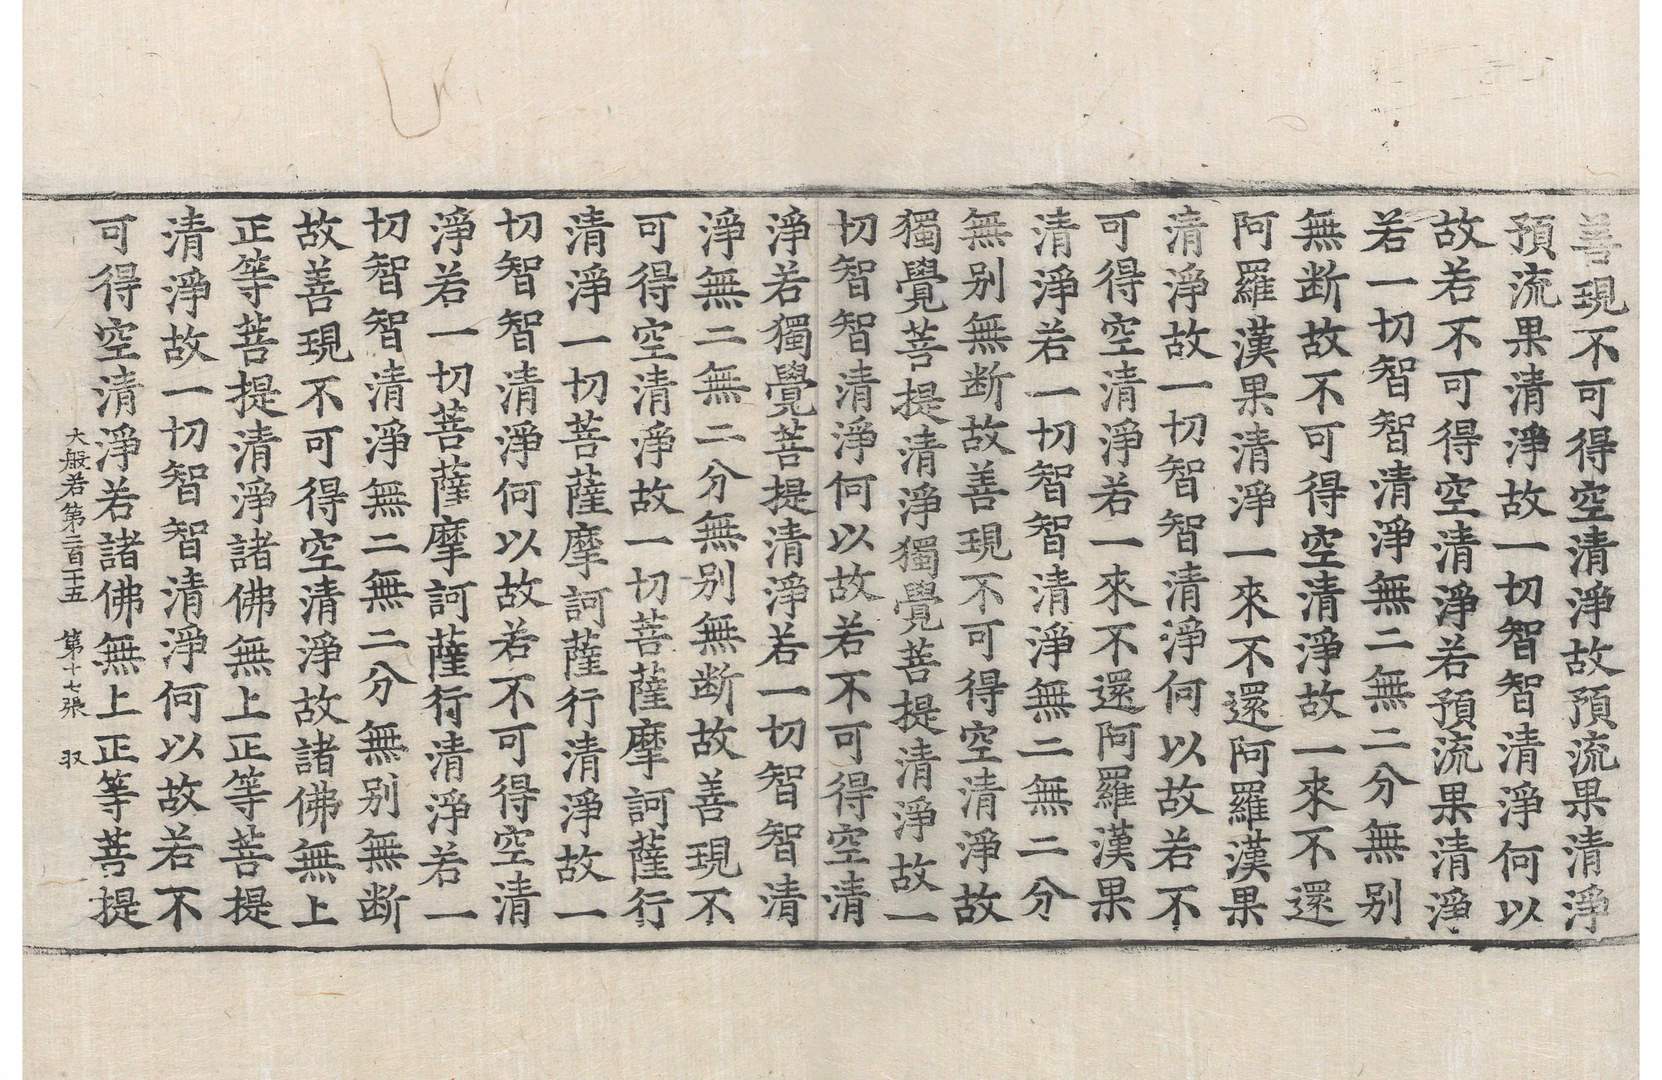 善現不可得空清淨故預流果清淨
預流果清淨故一切智智清淨何以
故若不可得空清淨若預流果清淨
若一切智智清淨無二無二分無别
無断故不可得空清淨故一來不還
阿羅漢果清淨一來不還阿羅漢果
清淨故一切智智清淨何以故若不
可得空清淨若一來不還阿羅漢果
清淨若一切智智清淨無二無二分
無别無断故善現不可得空清淨故
獨覺菩提清淨獨覺菩提清淨故一
切智智清淨何以故若不可得空清
淨若獨覺菩提清淨若一切智智清
淨無二無二分無别無断故善現不
可得空清淨故一切菩薩摩訶薩行
清淨一切菩薩摩訶薩行清淨故一
切智智清淨何以故若不可得空清
淨若一切菩薩摩訶薩行清淨若一
切智智清淨無二無二分無别無断
故善現不可得空清淨故諸佛無上
正等菩提清淨諸佛無上正等菩提
清淨故一切智智清淨何以故若不
可得空清淨若諸佛無上正等菩提
大般若第二百二十五 第十七張 収